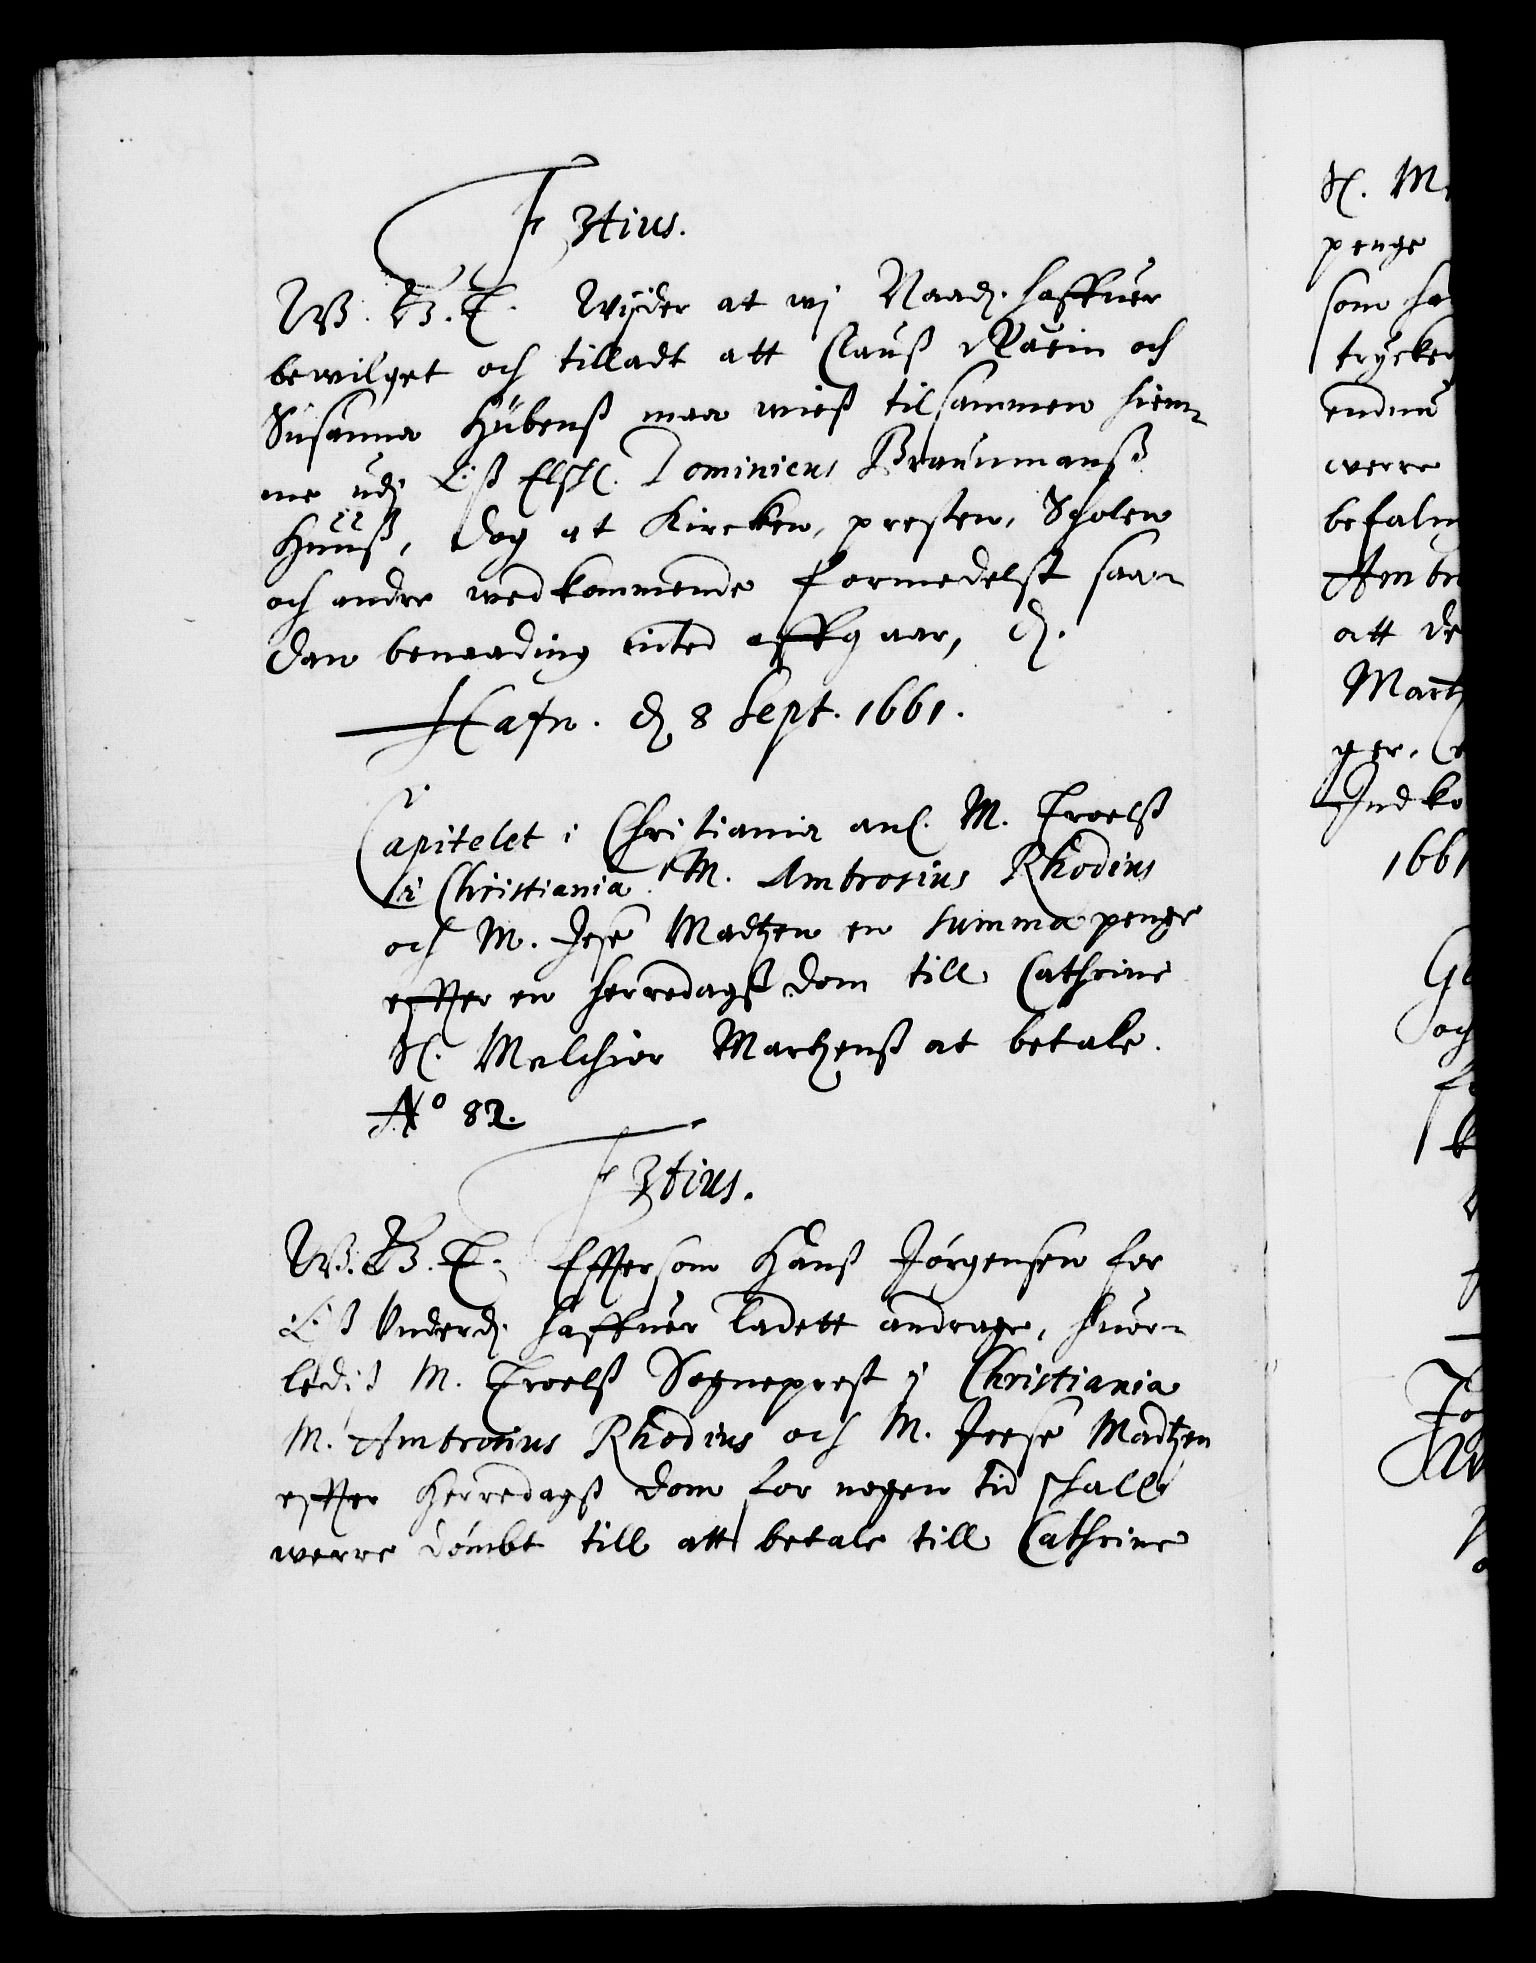 F 3tius.
W. G. T. Wijder at wj Naadj. haffuer
bewilget och tilladt att Clauß Racin och
Susanna Hübenß maa wieß tilsammen hiem-
me udj Oß Elskl. Dominicus Braunmanß
Huuß, dog at Kircken, presten, Scholen
och andre wedkommende formedelst saa-
dan benaading inted affgaar, Ej.
Hafn. d 8 Sept. 1661.
Capitelet i Christiania anl. M. Troelß
i Christiania M. Ambrosius Rhodius
och M. Jese Madtzen en summa penge
effter en herredagß dom till Cathrine
Sl. Melchior Martzenß at betale.
No 82.
F 3tius.
W. G. T. Efftersom Hanß Jørgensen for
Oß Underdj. haffuer ladett andrage, huor-
lediß M. Troelß Sogneprest i Christiania
M. Ambrosius Rhodius och M. Jeese Madtzen
effter herredagß dom for nogen tid schall
werre dømbt till att betale till Cathrine
Sl. M
penge
som ha
trycke
endnu
werre
befaln
Ambr
att de
Martz
ger.
Indko
1661